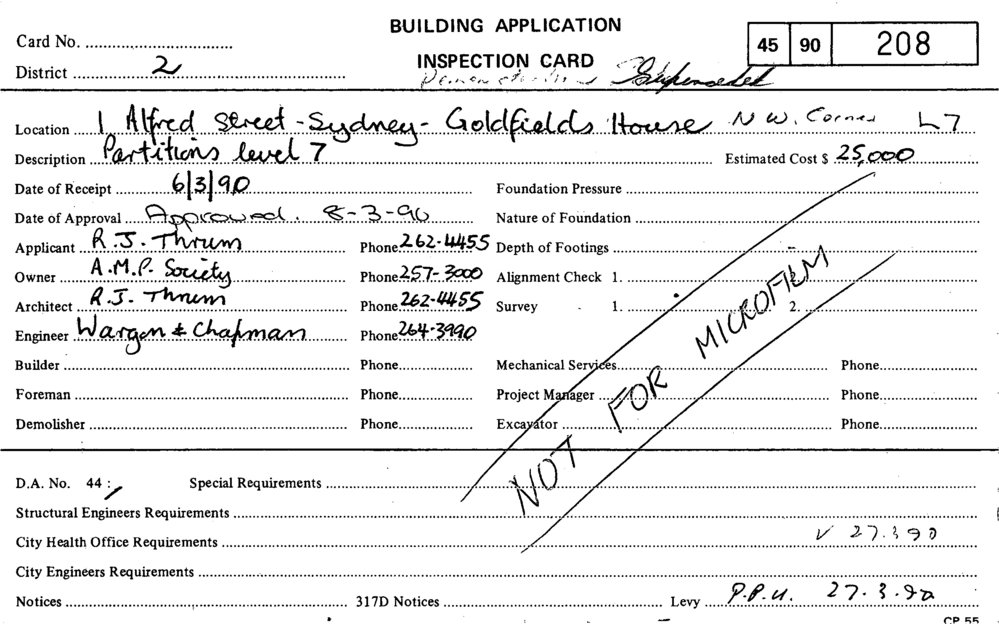 BUILDING APPLICATION
INSPECTION CARD
Card No.
45 90 208
District 2
Superseded
Location 1 Alfred Street - Sydney - Goldfields House NW. Corner L7
Description Partitions level 7 Estimated Cost $ 25,000
Date of Receipt 6/3/90 Foundation Pressure
Date of Approval Approved. 8-3-90 Nature of Foundation
Applicant R.J. Thrum Phone 262-4455 Depth of Footings
Owner A.M.P. Society Phone 257-3000 Alignment Check 1. 2.
Architect R.J. Thrum Phone 262-4455 Survey 1. 2.
Engineer Wargon & Chapman Phone 264-3990
Builder Phone Mechanical Services Phone
Foreman Phone Project Manager Phone
Demolisher Phone Excavator Phone
NOT FOR MICROFILM
D.A. No. 44: Special Requirements
Structural Engineers Requirements
City Health Office Requirements 27.3.90
City Engineers Requirements
Notices 317D Notices Levy P.P.U. 27.3.90
CP 55